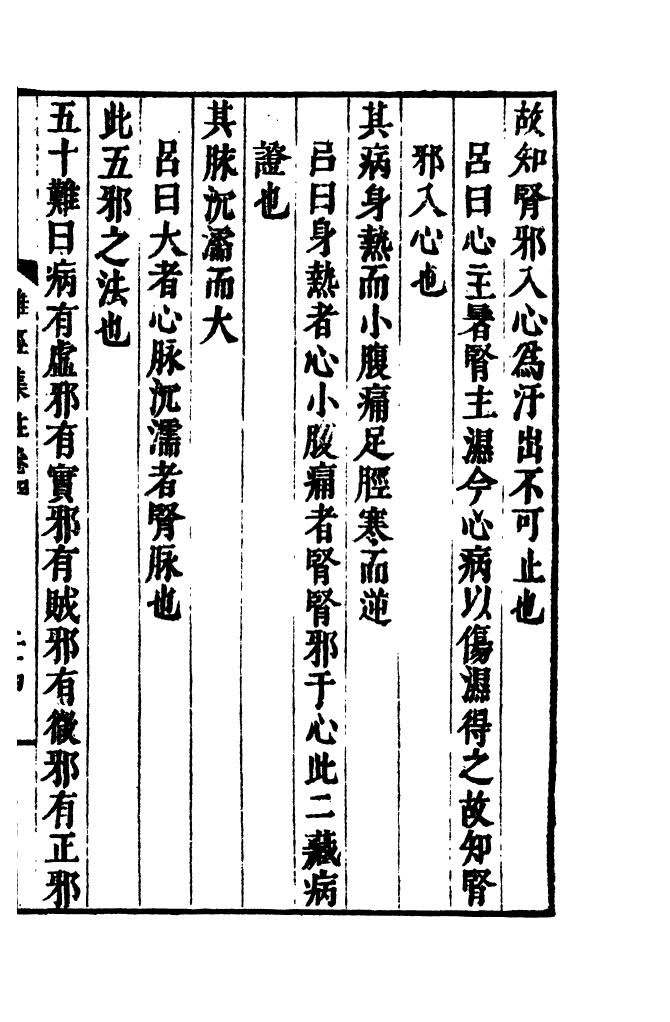 故知腎邪入心為汗出不可止也
呂曰心主暑腎主濕今心病以傷濕得之故知腎
邪入心也
其病身熱而小腹痛足脛寒而逆
呂曰身熱者心小腹痛者腎腎邪于心此二藏病
證也
其脉沉濡而大
呂曰大者心脉沉濡者腎脉也
此五邪之法也
五十難曰病有虛邪有實邪有賊邪有微邪有正邪
難經集註卷四